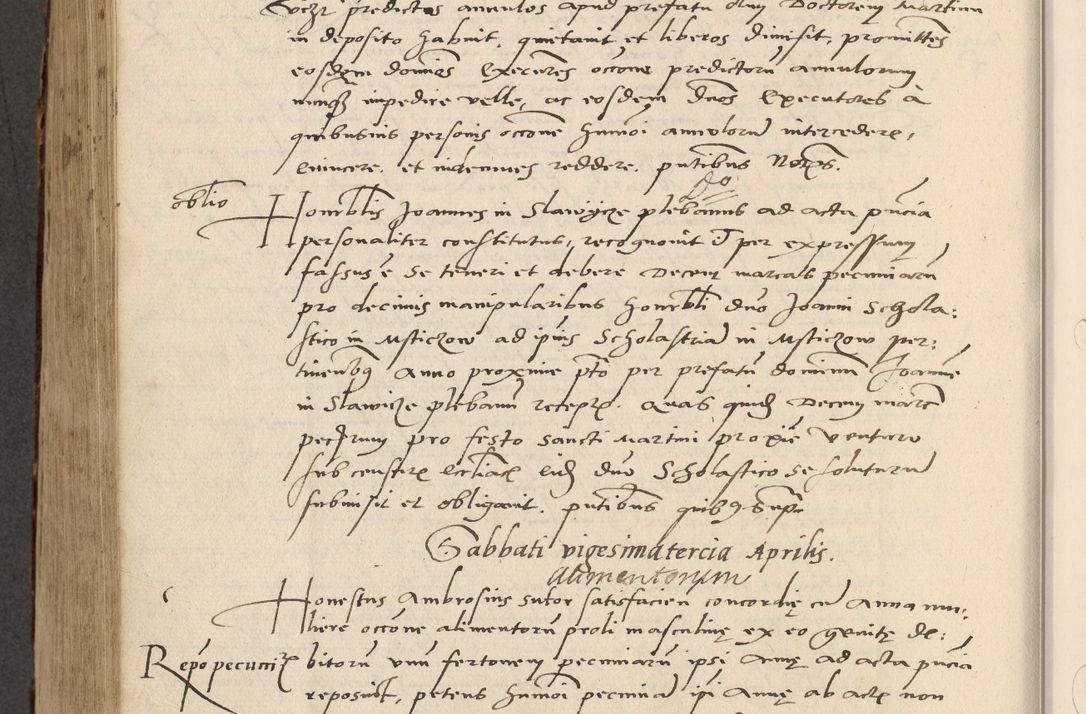 predictos annulos apud prefatu dnm Doctorem Martinu
in deposito habuit, quietavit et liberos dimisit, promittens
eosdem dominos Executores occone predictoru annulorum
nunq impedire velle, ac eosdem dnos Executores à
quibusvis personis occone humoi annuloru intercedere,
evincere, et indemnes reddere. pntibus Notris.
oblio
Honorblis Joannes in Slawycze plebanus ad acta pncia
personaliter constitutus, recognovit et per expressum
fassus e se teneri et debere Decem marcas pecuniaru
pro decimis manipularibus honorbli dno Joanni Schola:
stico in Msticzow ad ipius Scholastria in Msticzow per:
tinentibus Anno proxime pto per prefatu dominum Joanne
in Slawicze plebanu recept. quas quid Decem marc
pecuniarum pro festo sancti Martini proxie venturo
sub censure ecclastic eid dno Scholastico se soluturu
submisit et obligavit. pntibus quibus supr
Sabbati vigesima tercia Aprilis.
alimentorum
Honestus Ambrosius sutor satisfacien concordię cu Anna mu:
liere occone alimentoru proli masculinę ex eo genitę de:
Repo pecunie
bitoru unu fertonem pecuniaru ipsi Annę ad acta pncia
reposuit, petens humoi pecunia ipi Annę ab actis non